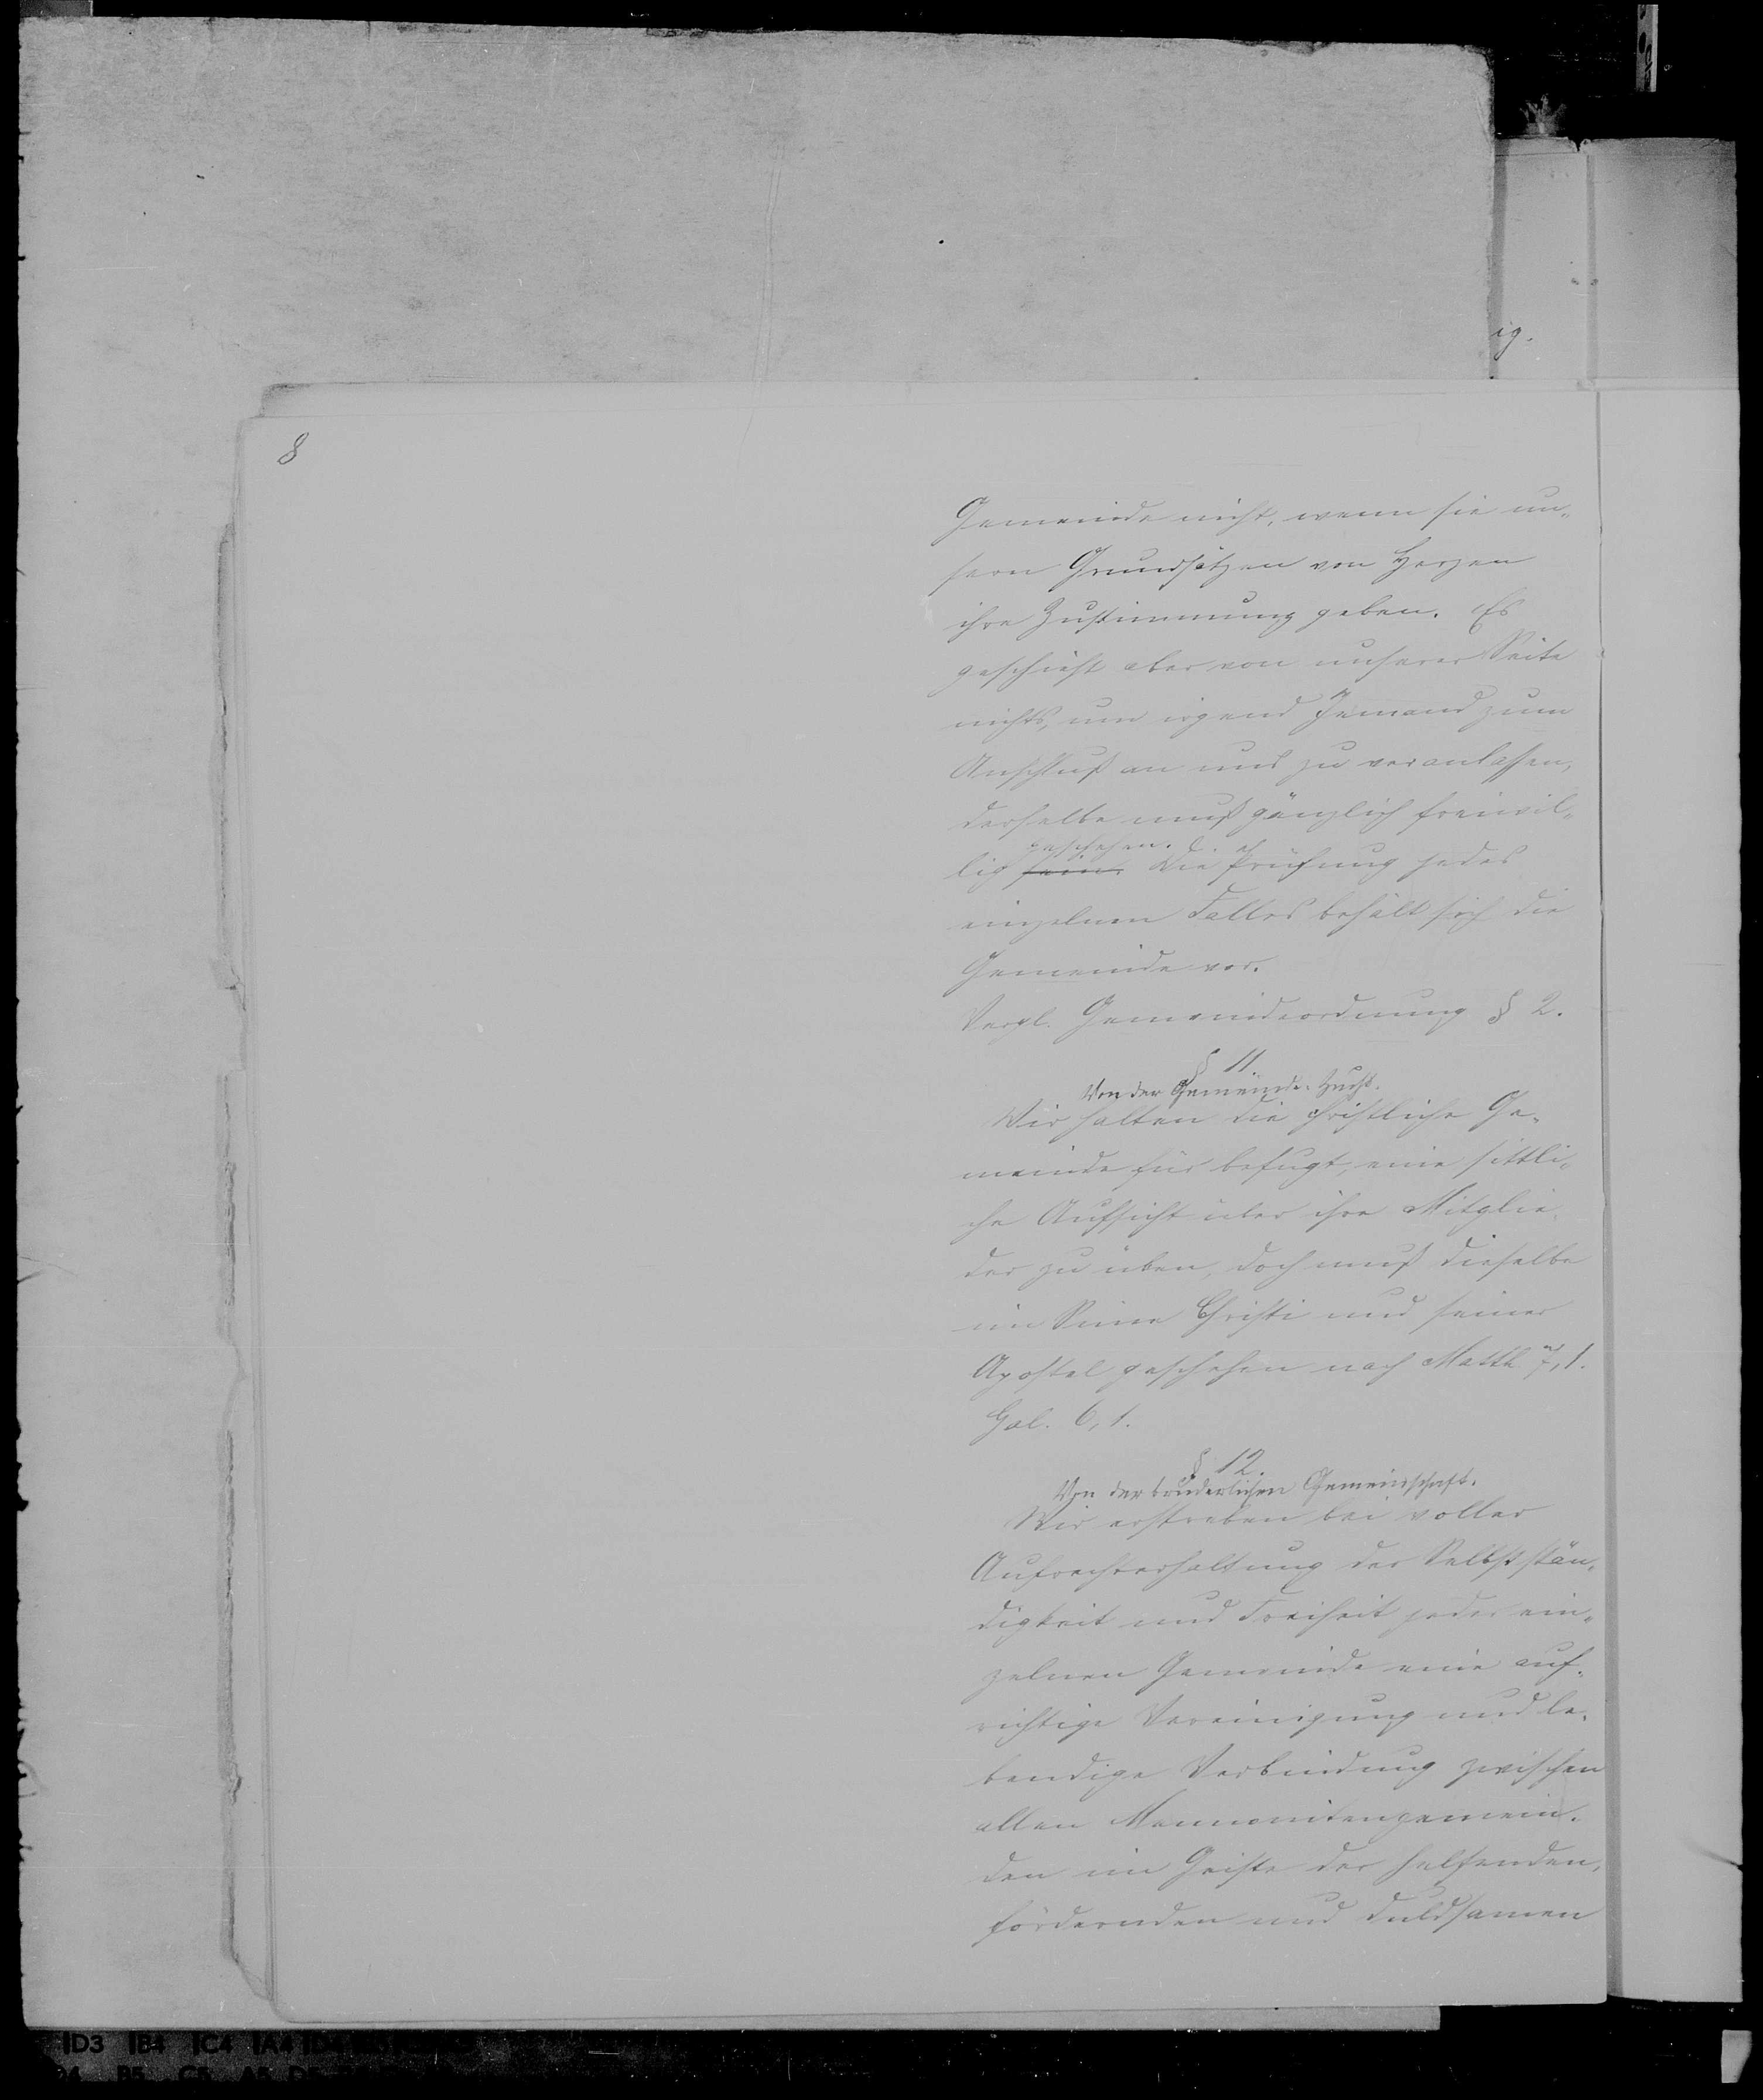 ig.
8
Gemeinde nicht, wenn sie un„
sern Grundsätzen von Herzen
ihre Zustimmung geben. Es
geschieht aber von unserer Seite
nichts, um irgend Jemand zum
Anschluß an uns zu veranlassen,
derselbe muß gänzlich freiwil„
geschehen.
lig sein. Die Prüfung jedes
einzelnen Falles behält sich die
Gemeinde vor.
Vergl. Gemeindeordnung § 2.
§ 11.
Von der Gemeinde-Zucht.
Wir halten die christliche Ge„
meinde für befugt, eine sittli„
che Aufsicht über ihre Mitglie„
der zu üben, doch muß dieselbe
im Sinne Christi und seiner
Apostel geschehen nach Matth. 7, 1.
Gal. 6, 1.
§ 12.
Von der brüderlichen Gemeinschaft.
Wir erstreben bei voller
Aufrechterhaltung der Selbststän„
digkeit und Freiheit jeder ein„
zelnen Gemeinde eine auf„
richtige Vereinigung und le„
bendige Verbindung zwischen
allen Mennonitengemein„
den im Geiste der helfenden,
fördernden und duldsamen
D3 B4 C4 A4
B5 C5 A5